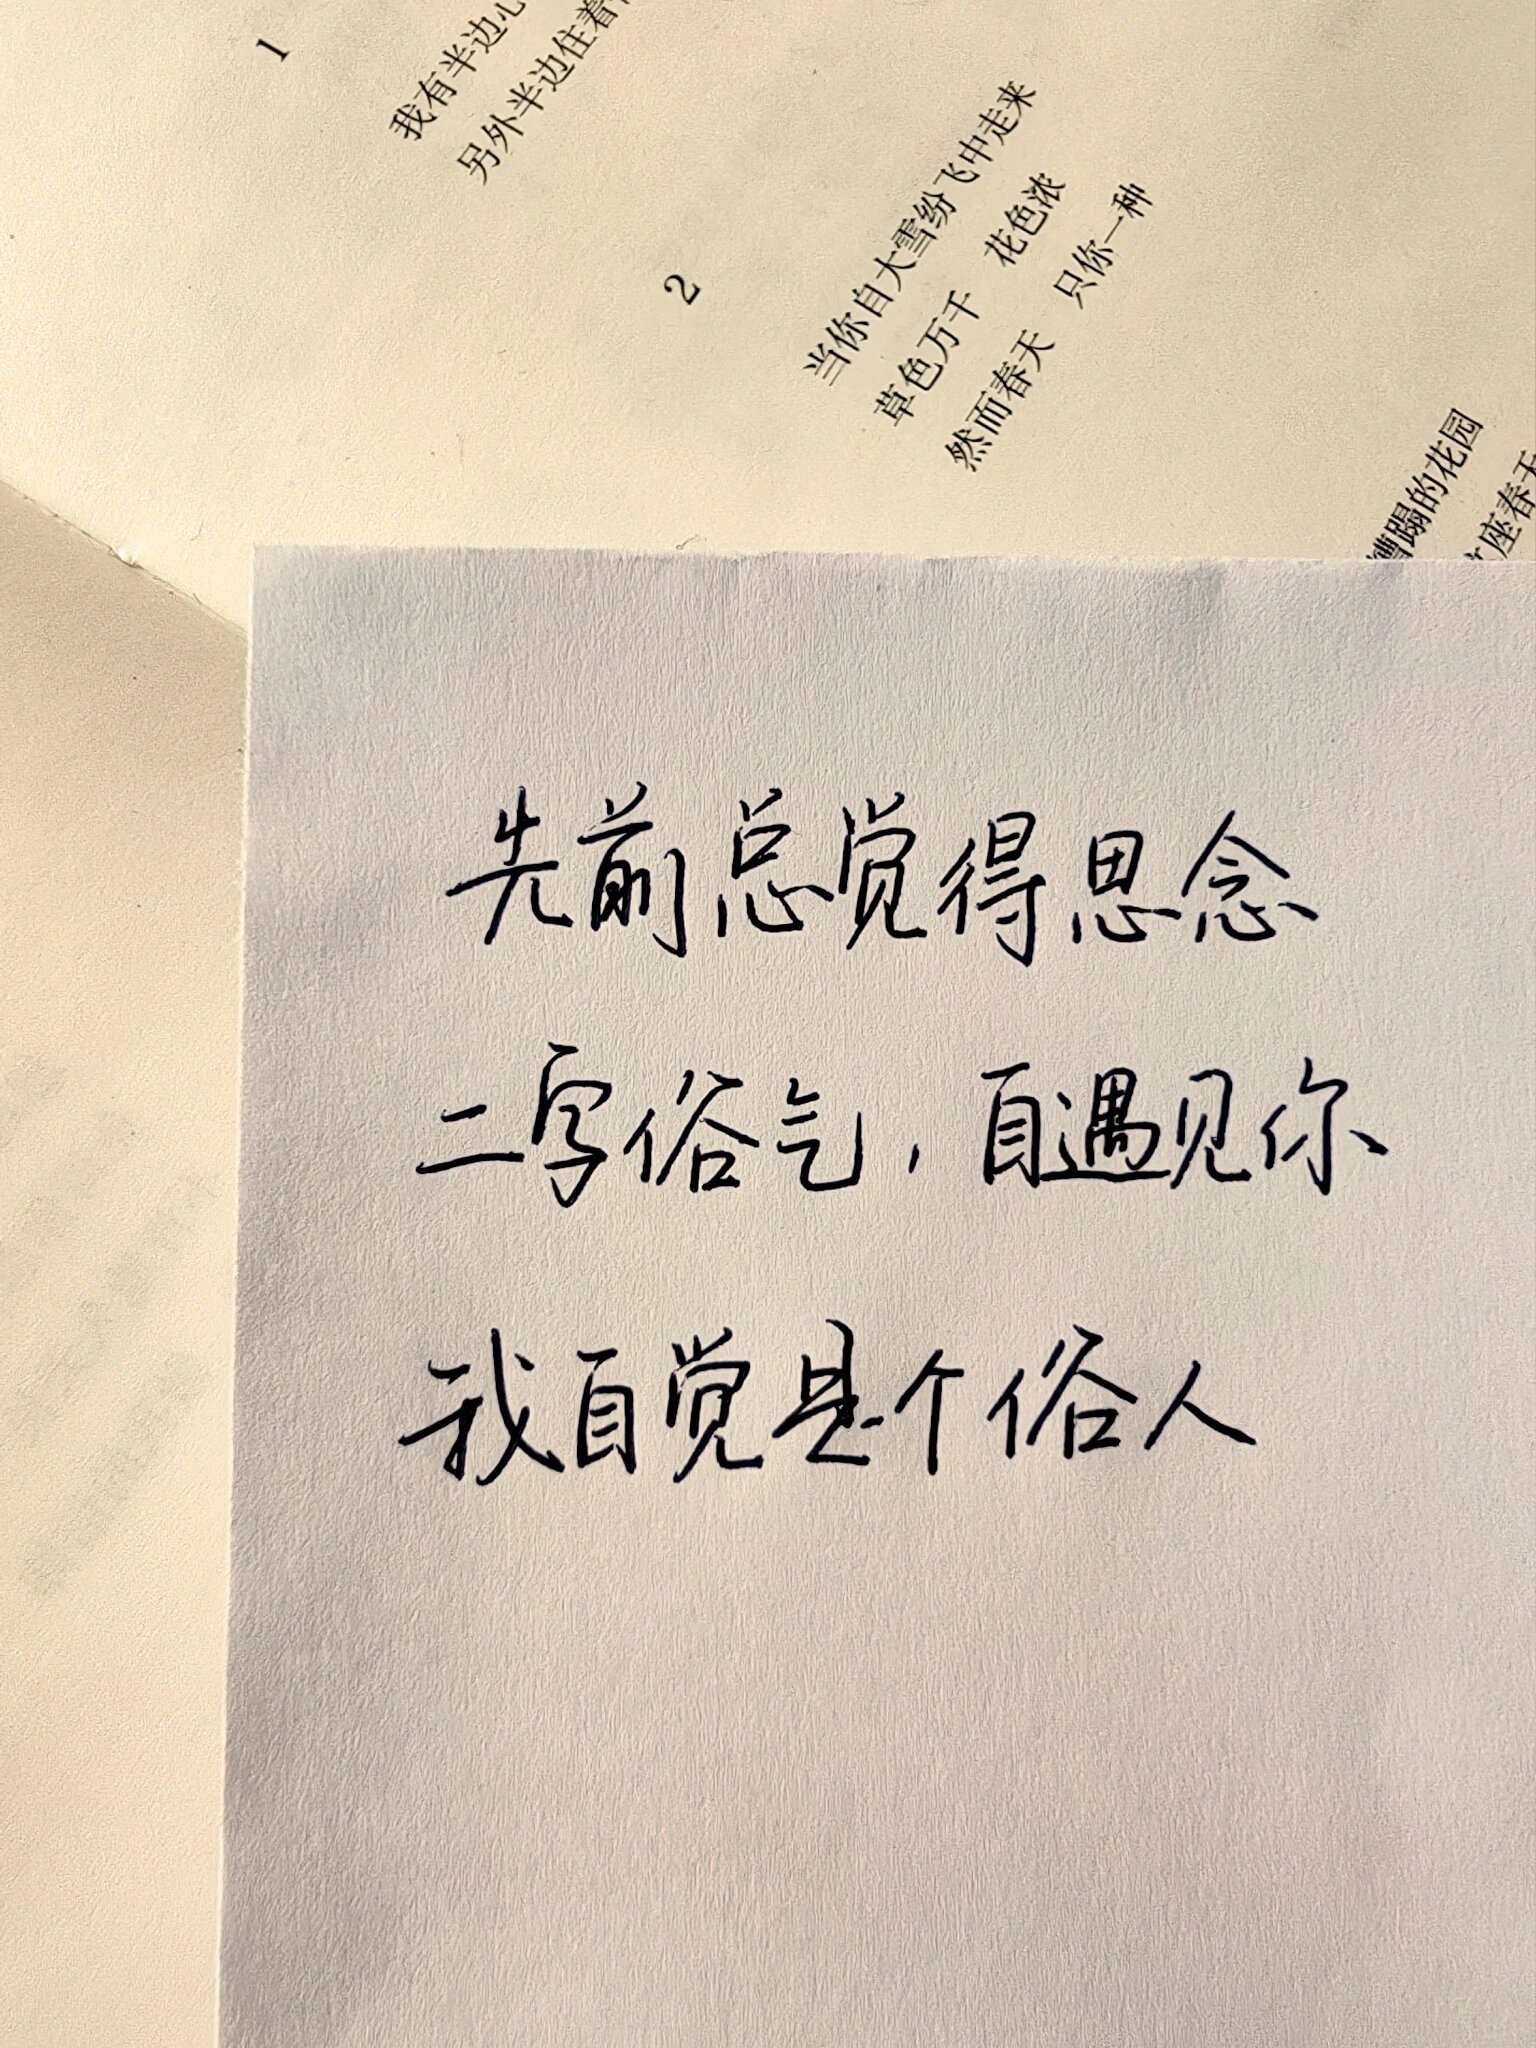 1
我有半边心
另外半边住着
2
当你自大雪纷飞中走来
草色万千 花色浓
然而春天 只你一种
糟蹋的花园
座春天
先前总觉得思念
二字俗气,自遇见你
我自觉是个俗人